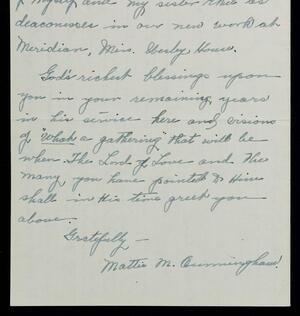 of myself and my sister Rhea as
deaconesses in our new work at
Meridian, Miss. Wesley House.
God's richest blessings upon
you in your remaining years
in his service here and visions
of "What a gathering" that will be
when The Lord of Love and the
many you have pointed to Him
shall in His time greet you
above.
Gratefully —
Mattie M. Cunningham.